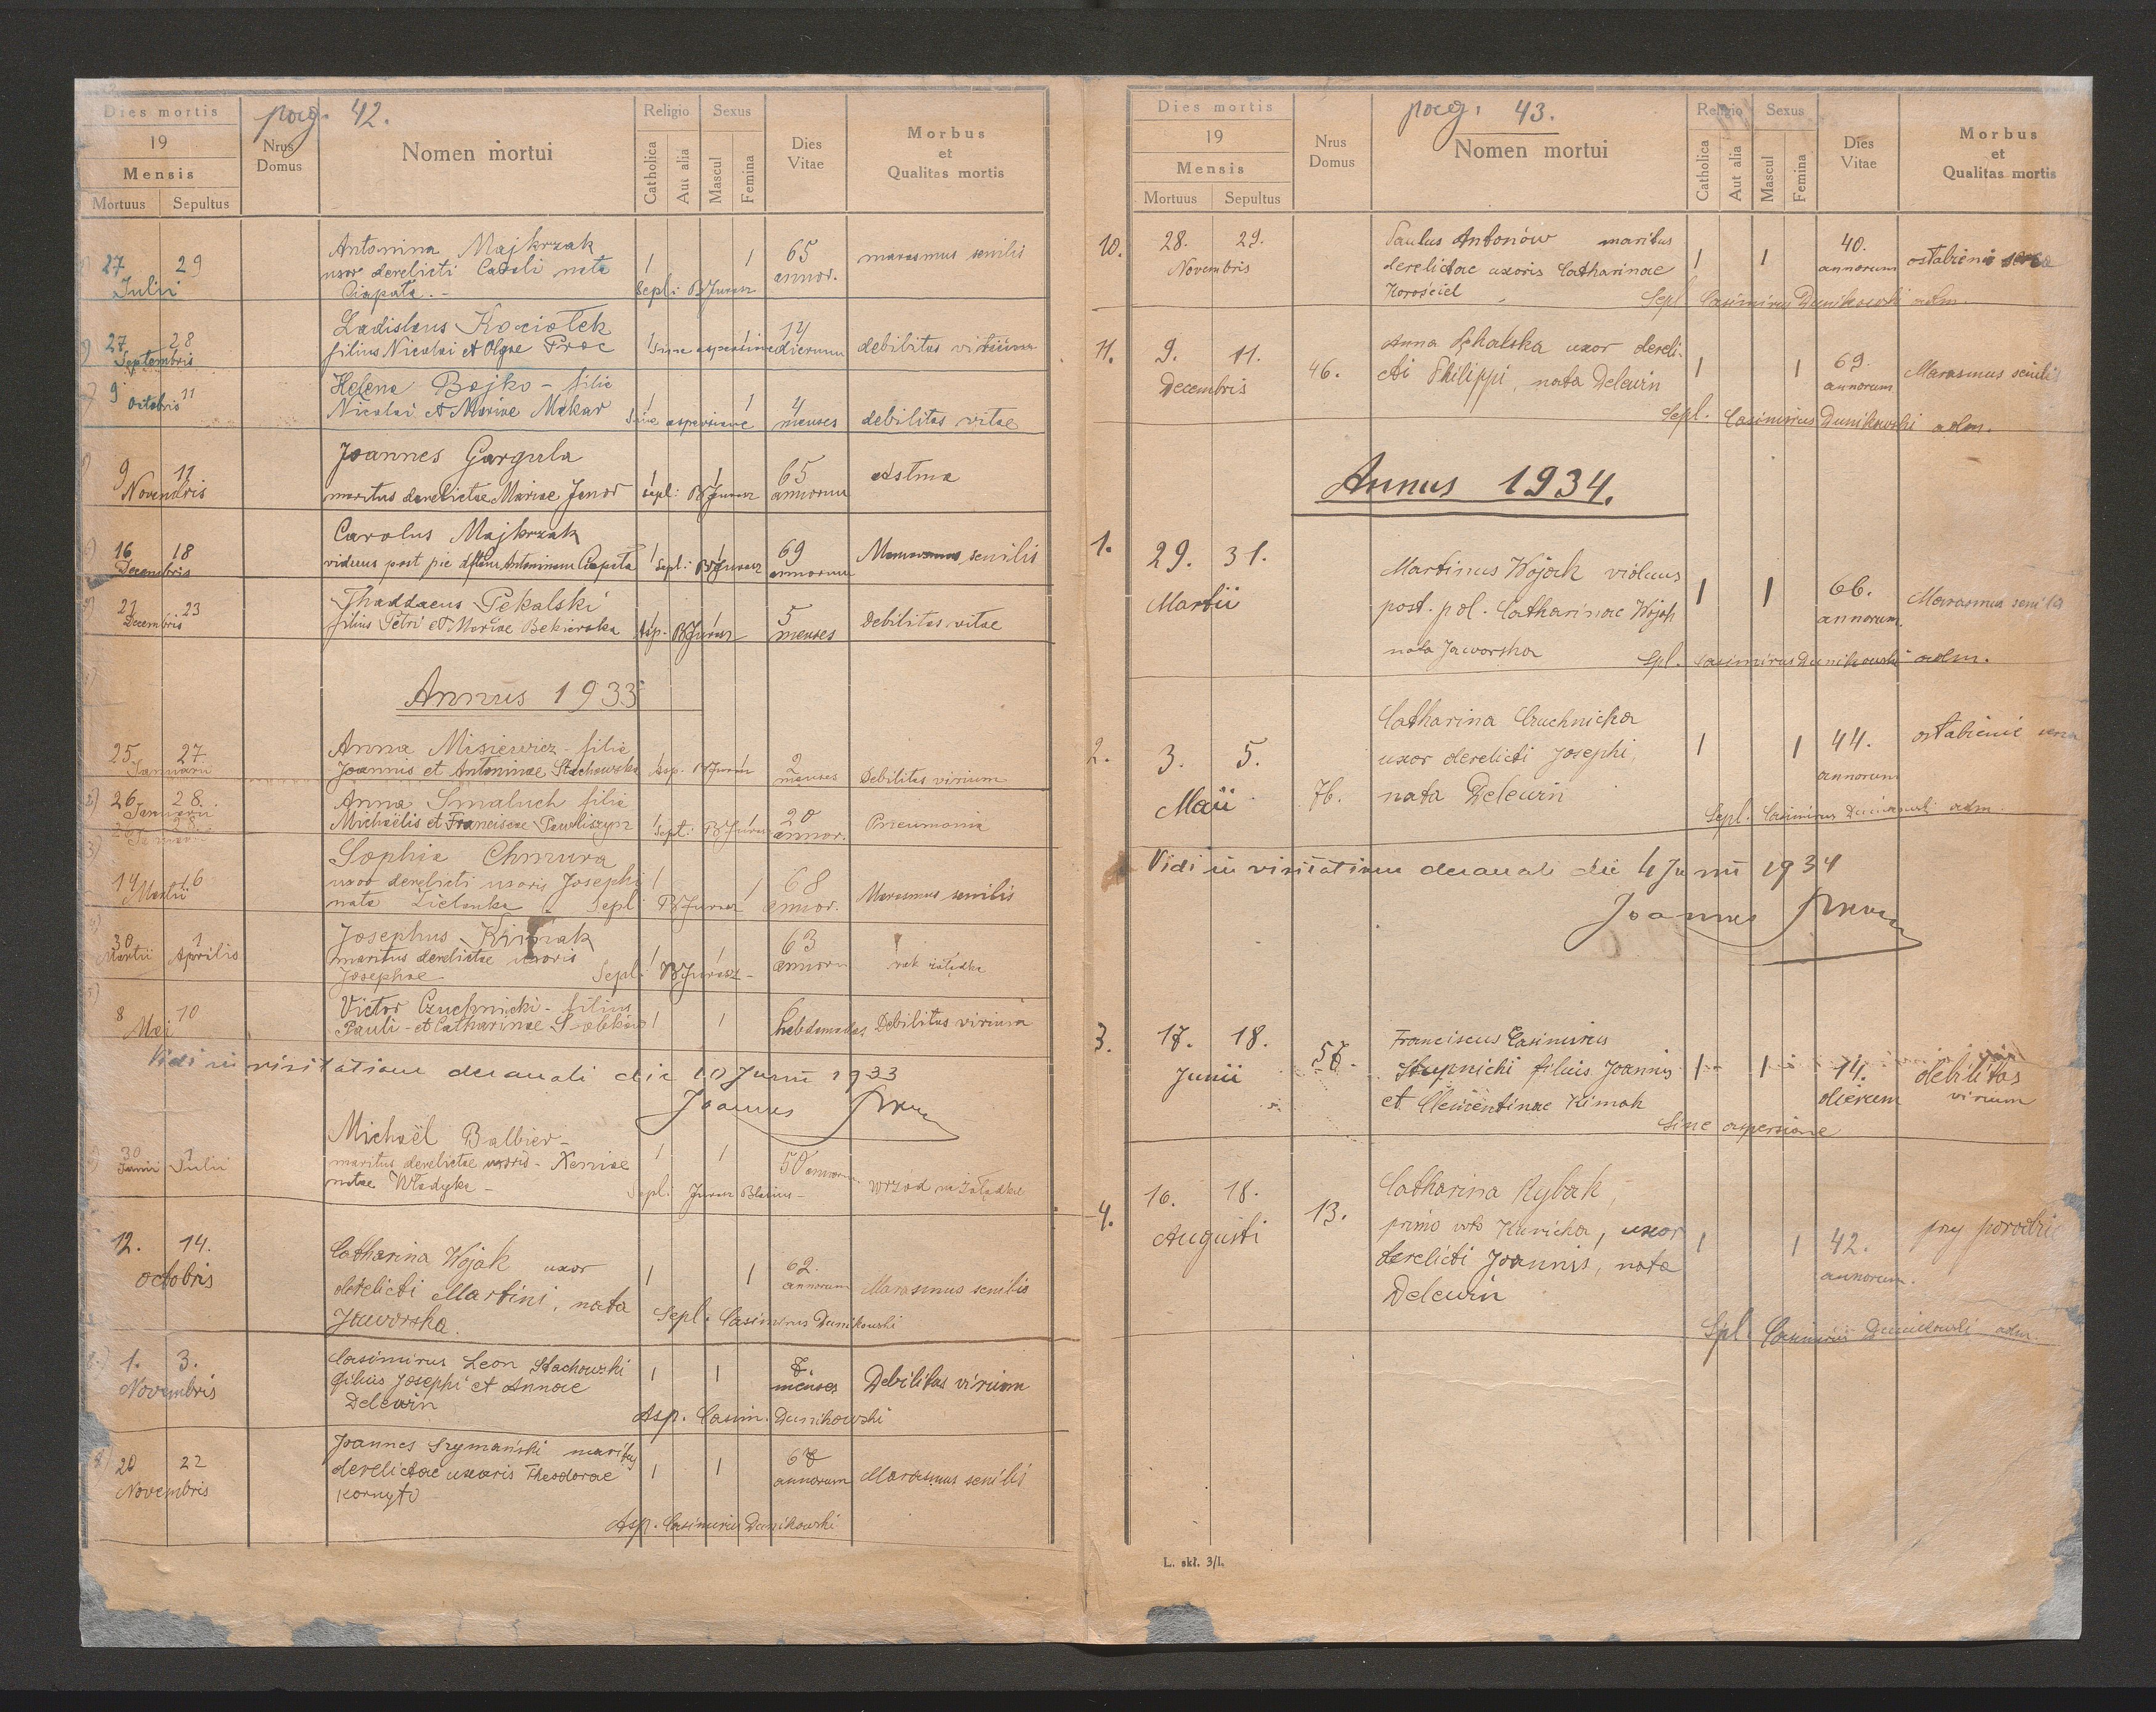 pag. 42.
Dies mortis
19
Mensis
Mortuus Sepultus
Nrus Domus
Nomen mortui
Religio
Catholica
Aut alia
Sexus
Mascul
Femina
Dies Vitae
Morbus et Qualitas mortis
27 29 Antonina Majkrzak 1 1 65 marasmus senilis
Julii uxor derelicti Caroli nata annor.
Ciapała.- Sepl: BJurasz
27 28 Ladislaus Kociołek 14
Septembris filius Nicolai et Olgae Proc 1 sine aspersione dierum debilitas
9 11 Helena Bojko - filia
Octobris Nicolai et Mariae Makar 1 1 4
Sine aspersione menses debilitas vitae
9 11 Joannes Gargula 1 1 65 astma
Novembris maritus derelictae Mariae Sepl: BJurasz annorum
16 18 Carolus Majkrzak 1 1 69 senilis
Decembris viduus post pie Antoninam Ciapała Sepl: BJurasz annorum
21 23 Thaddaeus Pekalski 5
Decembris filius Petri et Mariae Bekierska Asp. BJurasz menses Debilitas vitae
Annus 1933
25 27 Anna Misiewicz - filia 2
Januarii Joannis et Antoninae Stachowska Asp. BJurasz menses Debilitas virium
2) 26 28. Anna Smaluch filia 20
Januarii Michaëlis et Franciscae Pawliszyn Sepl: BJurasz annor. Pneumonia
3) Sophia Chmura
14 16 uxor derelicti uxoris Josephi 1 1 68
Martii nata Zielonka Sepl BJurasz annor. Marasmus senilis
30 1 Josephus Kimak 63
Martii Aprilis maritus derelictae uxoris 1 1 annorum rak żołądka
Josephae Sepl: BJurasz -
8 10 Victor Czuchnicki - filius
Mai Pauli - et Catharinae 1 1 hebdomadas Debilitas virium
Vidi in visitatione decanali die 10 Junii 1933
Joannes
30 1 Michaël Balbier -
Junii Julii maritus derelictae uxoris - Xeniae 1 1 50 annorum
natae Władyka - Sepl: Jurasz Blasius - wrzód na żołądku
12. 14. Catharina Wojak uxor 1 1 62.
octobris derelicti Martini, nata annorum Marasmus senilis
Jaworska. Sepl. Casimirus Dunikowski
1. 3. Casimirus Leon Stachowski 1 1 7.
Novembris filius Josephi et Annae menses Debilitas virium
Delewin Asp. Casim. Dunikowski
20 22 Joannes Szymański maritus 1 1 67
Novembris derelictae uxoris Theodorae annorum Marasmus senilis
Kornyło
Asp. Casimirus Dunikowski
pag. 43.
Dies mortis
19
Mensis
Mortuus Sepultus
Nrus Domus
Nomen mortui
Religio
Catholica
Aut alia
Sexus
Mascul
Femina
Dies Vitae
Morbus et Qualitas mortis
10. 28. 29. Paulus Antonów maritus 1 1 40.
Novembris derelictae uxoris Catharinae annorum osłabienie serca
Korościel Sepl Casimirus Dunikowski adm.
11. 9. 11. 46. Anna Pękalska uxor dereli- 1 1 69.
Decembris cti Philippi, nata Delewin annorum Marasmus senilis
Sepl. Casimirus Dunikowski adm.
Annus 1934.
1. 29. 31. Martinus Wojak viduus 1 1 66. Marasmus senilis
Martii post. pol. Catharinae Wojak annorum.
nata Jaworska Spl. Casimirus Dunikowski adm.
2. Catharina Czuchnicka
3. 5. uxor derelicti Josephi, 1 1 44. osłabienie serca
Maii 76. nata Delewin annorum
Sepl. Casimirus Dunikowski adm.
Vidi in visitatione decanali die 4 Junii 1934
Joannes
3. 17. 18. 57. Franciscus Casimirus
Junii Stupnicki filius Joannis 1 1 14. debilitas
et Clementinae Kimak dierum virium
Sine aspersione
4. 16. 18. 13. Catharina Rybak,
Augusti primo voto Kuvicka, uxor 1 1 42. przy porodzie
derelicti Joannis, nata annorum.
Delewin
Spl Casimirus Dunikowski adm.
L. skł. 3/I.